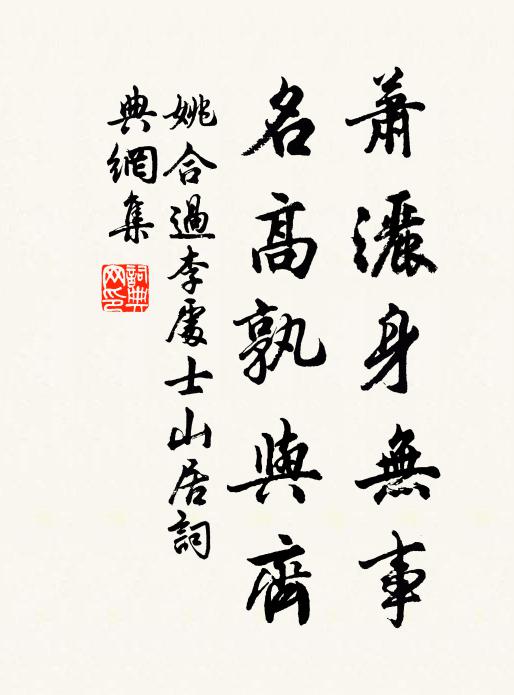 蕭灑身無事
名高孰與齊
姚合過李處士山居詞
典網集
詞典網印